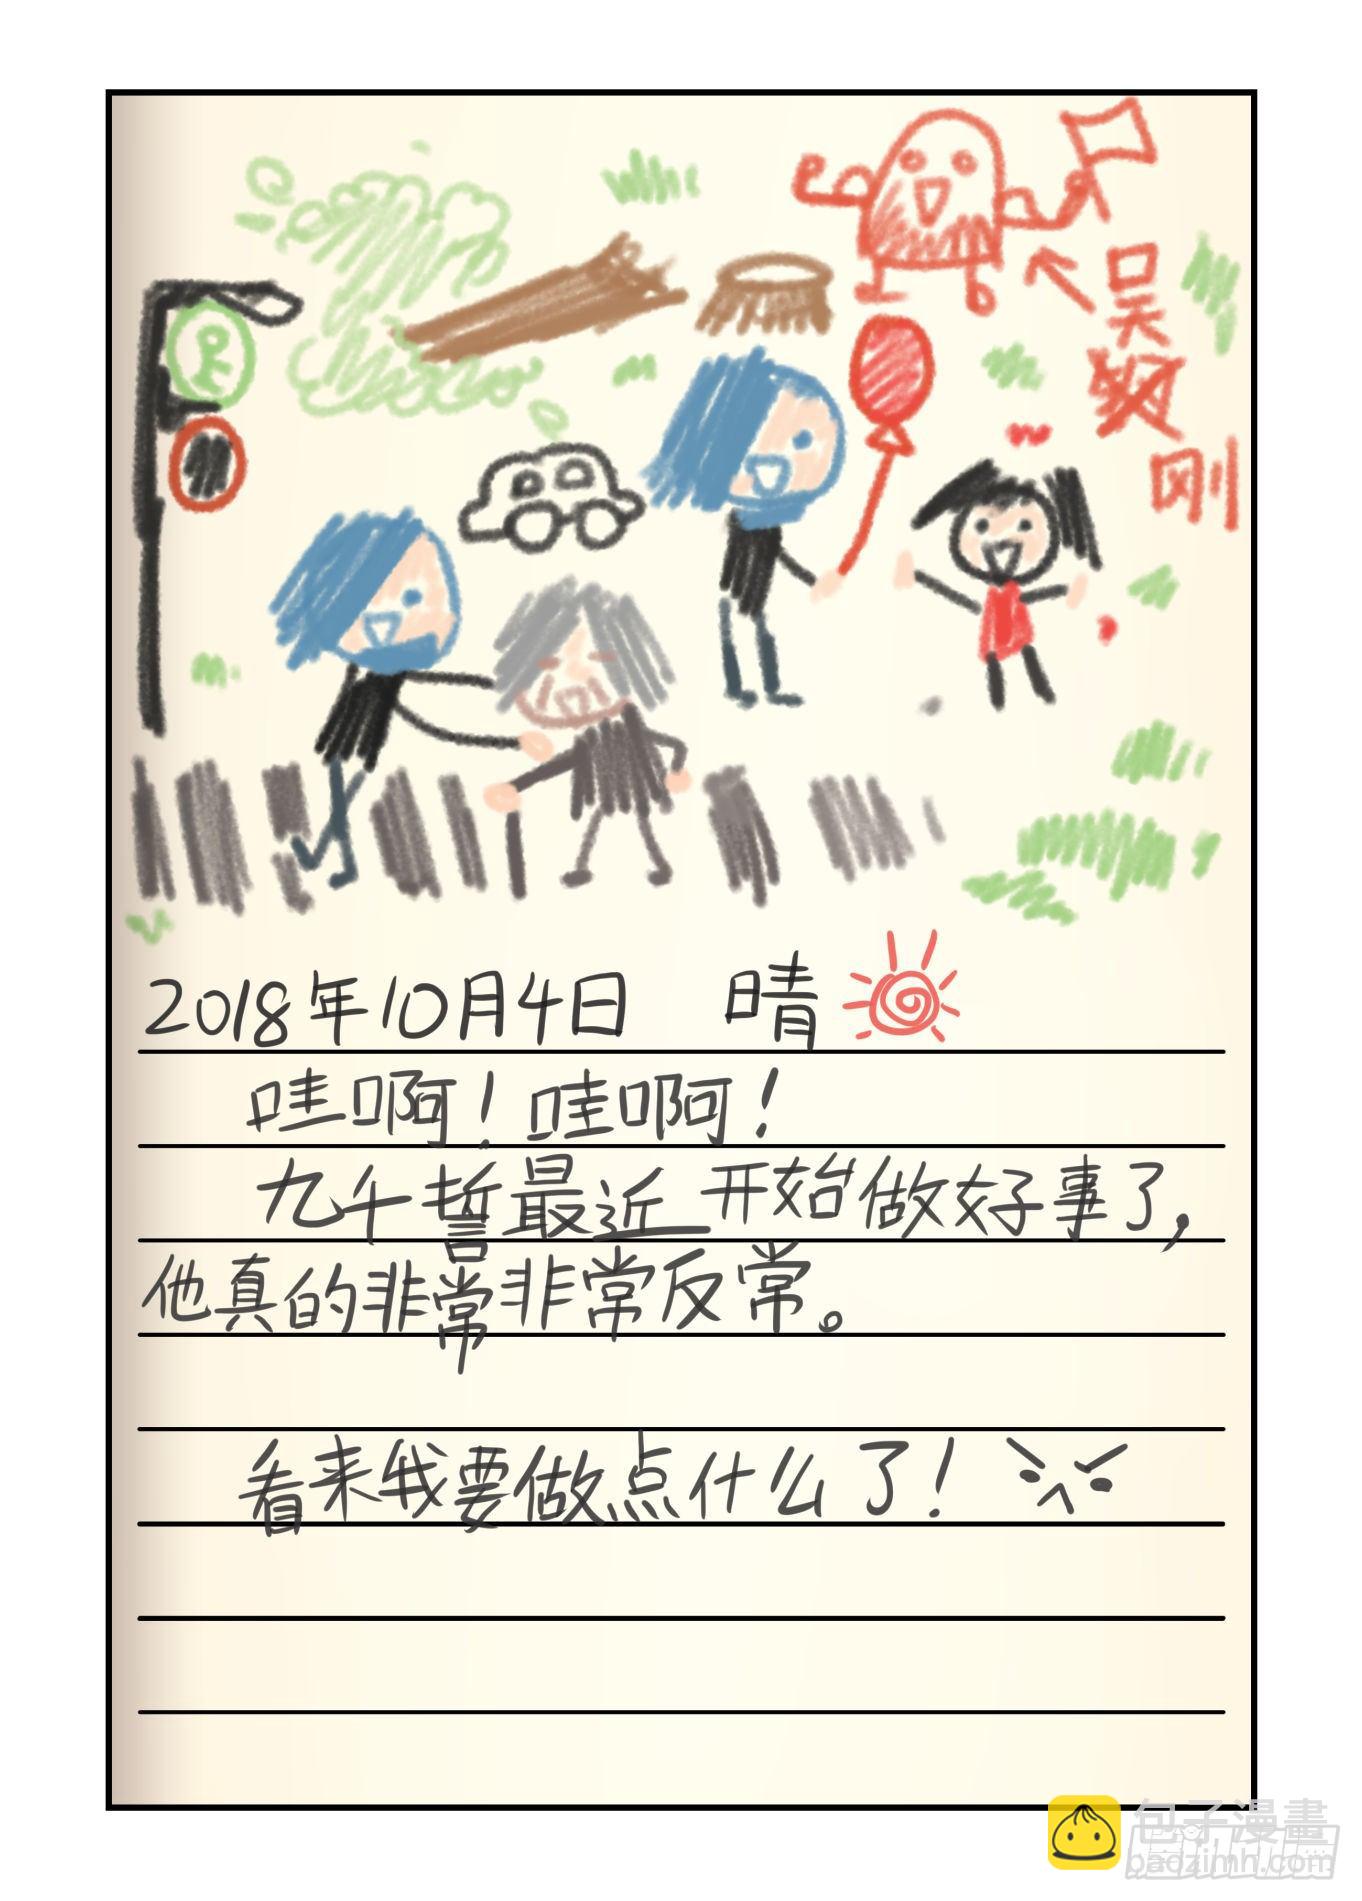 吴
刚
2018年10月4日 晴
哇啊！哇啊！
九千哲最近开始做好事了，
他真的非常非常反常。
看来我要做点什么了！
包子漫畫
baozimh.com